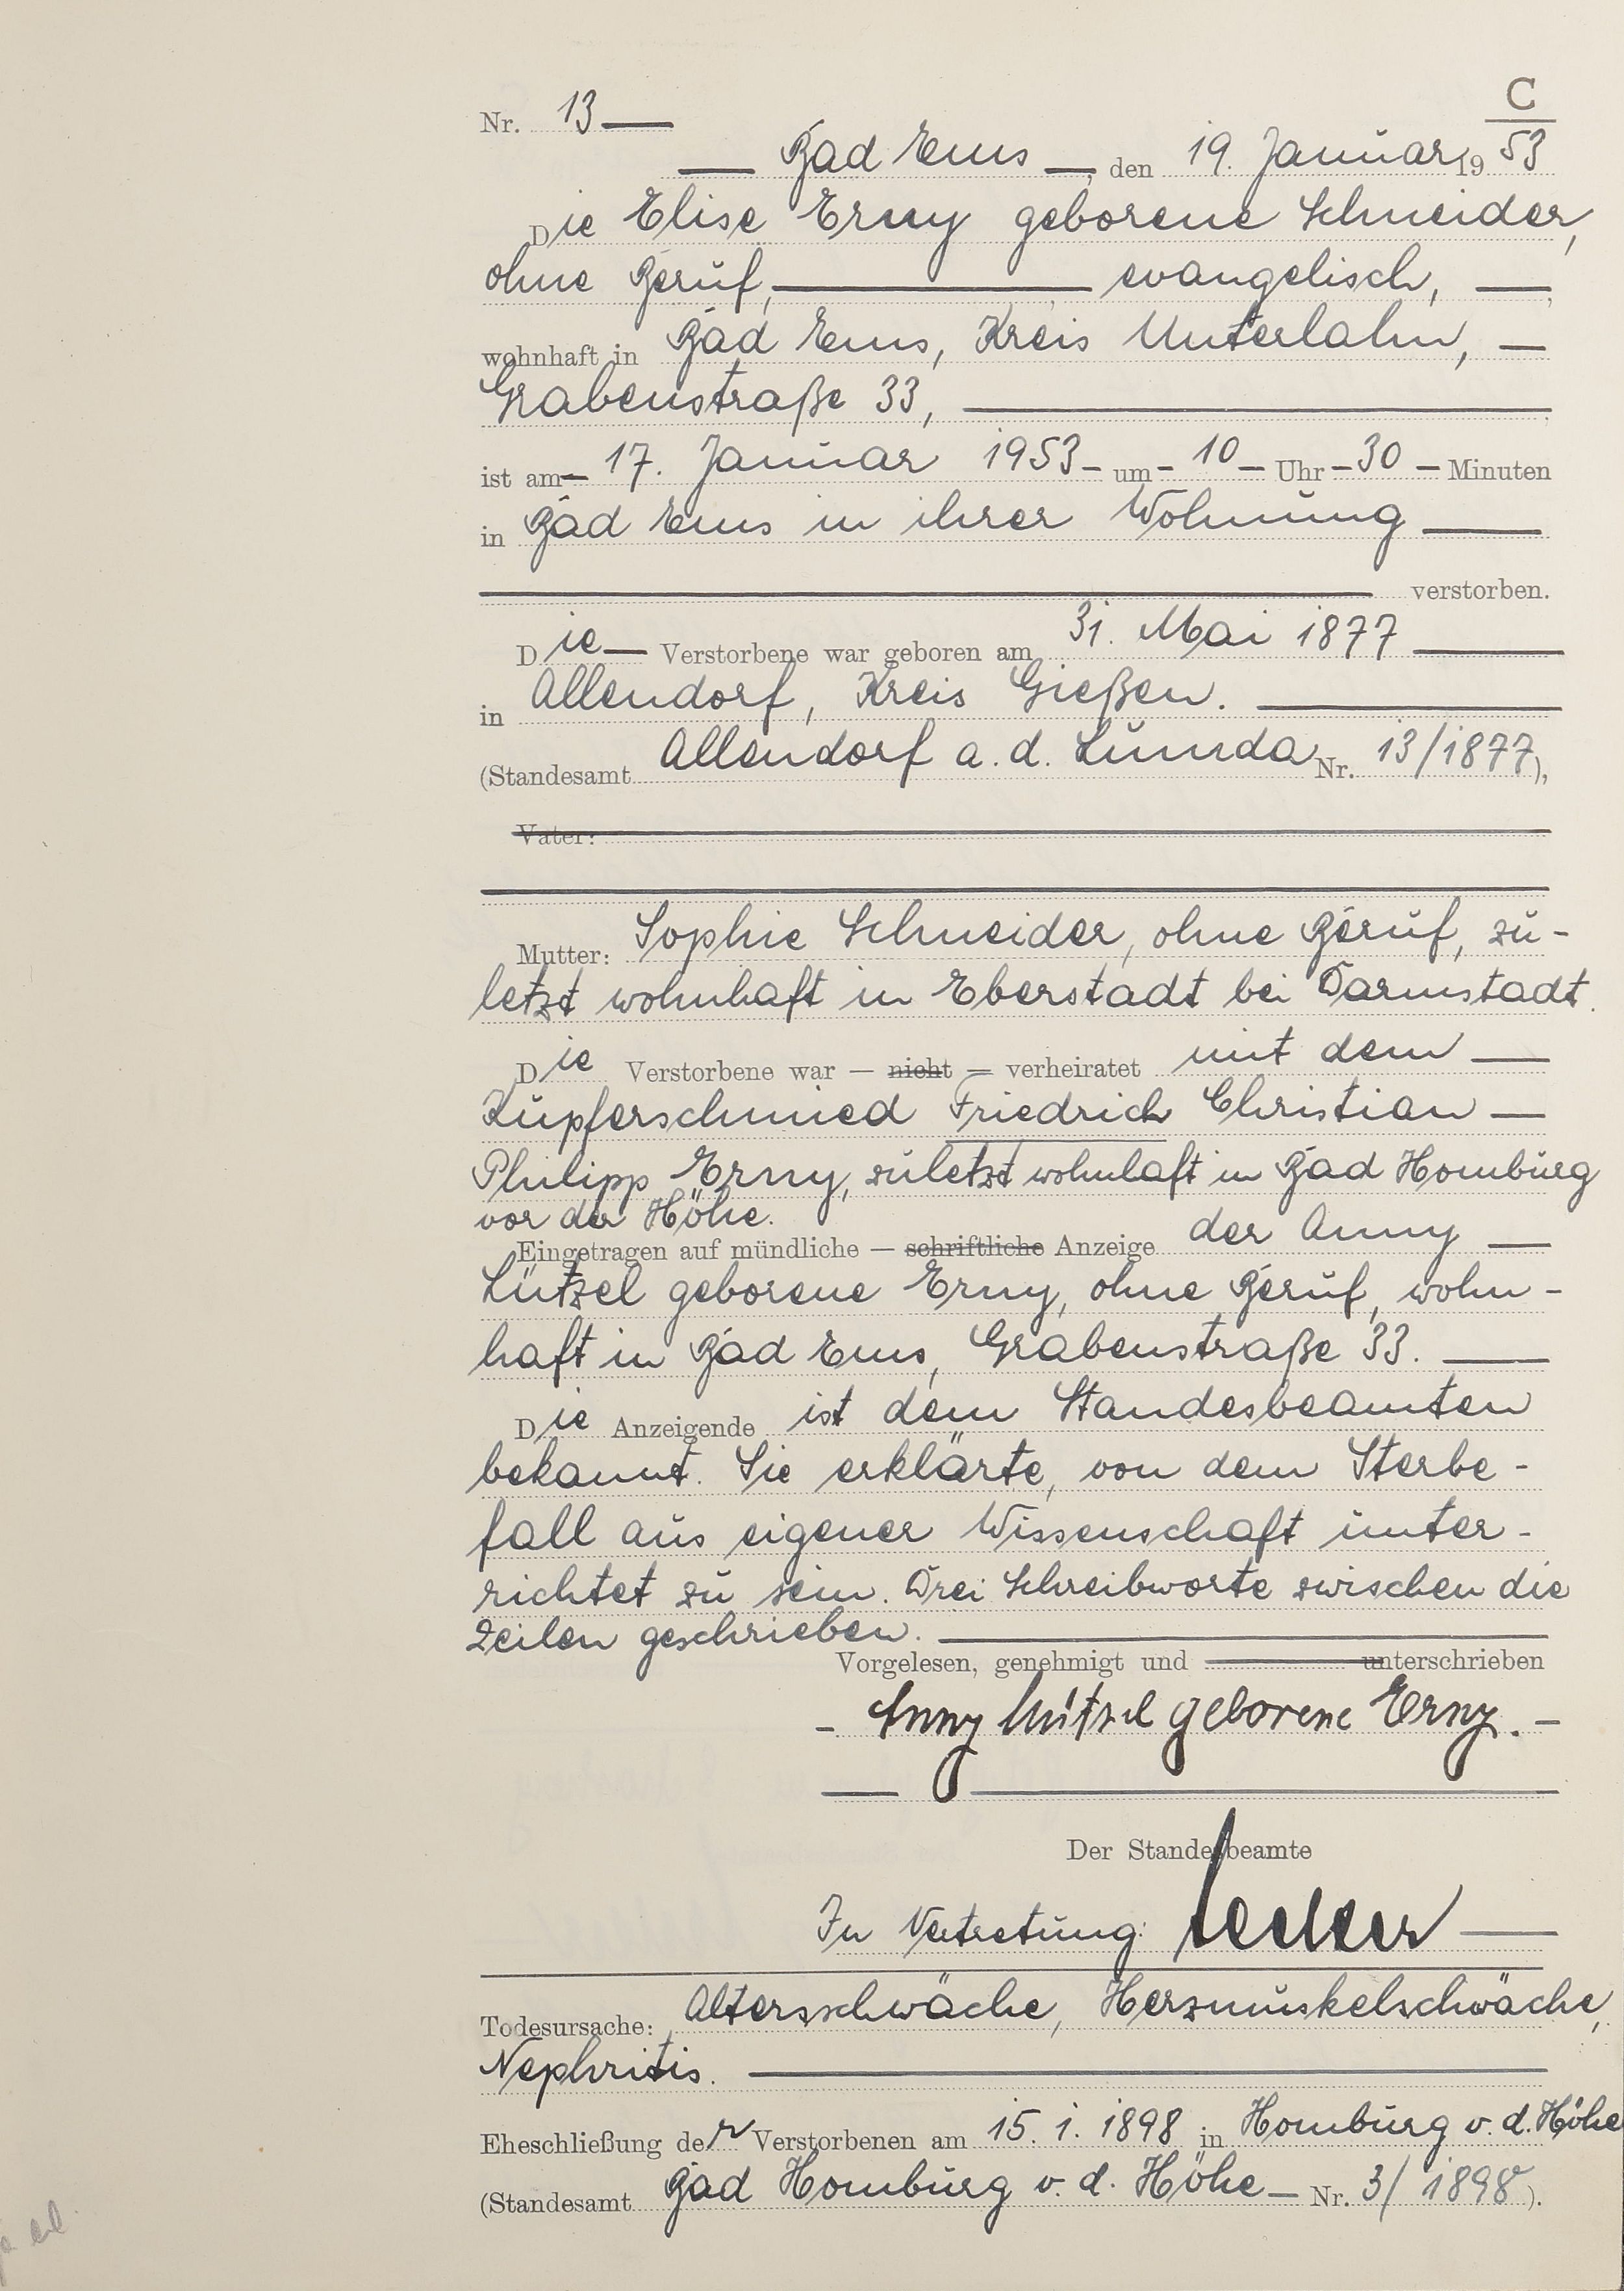 C
Nr. 13
Bad Ems, den 19. Januar 1953
Die Elise Erny geborene Schneider,
ohne Beruf, evangelisch,
wohnhaft in Bad Ems, Kreis Unterlahn,
Grabenstraße 33,
ist am 17. Januar 1953 um 10 Uhr 30 Minuten
in Bad Ems in ihrer Wohnung
verstorben.
Die Verstorbene war geboren am 31. Mai 1877
in Allendorf, Kreis Gießen.
(Standesamt Allendorf a. d. Lumda Nr. 13/1877),
Vater:
Mutter: Sophie Schneider, ohne Beruf, zu-
letzt wohnhaft in Eberstadt bei Darmstadt.
Die Verstorbene war — nicht — verheiratet mit dem
Kupferschmied Friedrich Christian
Philipp Erny, zuletzt wohnhaft in Bad Homburg
vor der Höhe.
Eingetragen auf mündliche — schriftliche Anzeige der Anny
Lützel geborene Erny, ohne Beruf, wohn-
haft in Bad Ems, Grabenstraße 33.
Die Anzeigende ist dem Standesbeamten
bekannt. Sie erklärte, von dem Sterbe-
fall aus eigener Wissenschaft unter-
richtet zu sein. Drei Schreibworte zwischen die
Zeilen geschrieben.
Vorgelesen, genehmigt und unterschrieben
- Anny Lützel geborene Erny. -
Der Standesbeamte
In Vertretung:
Todesursache: Altersschwäche, Herzmuskelschwäche,
Nephritis.
Eheschließung der Verstorbenen am 15. 1. 1898 in Homburg v. d. Höhe
(Standesamt Bad Homburg v. d. Höhe — Nr. 3/1898).